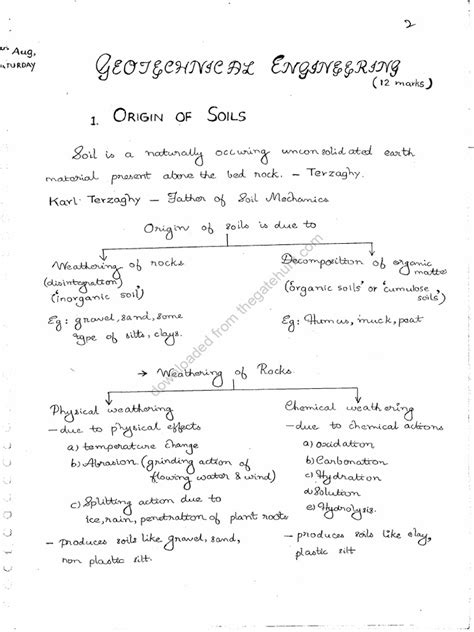 2
Aug,
GEOTECHNICAL ENGINEERING
(12 marks)
1. ORIGIN OF SOILS
Soil is a naturally occuring unconsolidated earth
material present above the bed rock. – Terzaghy.
Karl Terzaghy – Father of Soil Mechanics
Origin of soils is due to
Weathering of rocks
(disintegration)
('inorganic soil')
Eg: gravel, sand, some
type of silts, clays.
Decomposition of organic
matter
(Organic soils' or 'cumulose
soils')
Eg: Humus, muck, peat
→ Weathering of Rocks
Physical weathering
– due to physical effects
a) temperature change
b) Abrasion (grinding action of
flowing water & wind)
c) Splitting action due to
ice, rain, penetration of plant roots
– produces soils like gravel, sand,
non plastic silt.
Chemical weathering
– due to chemical actions
a) oxidation
b) Carbonation
c) Hydration
d) Solution
e) Hydrolysis.
– produces soils like clay,
plastic silt
downloaded from thegatehub.com